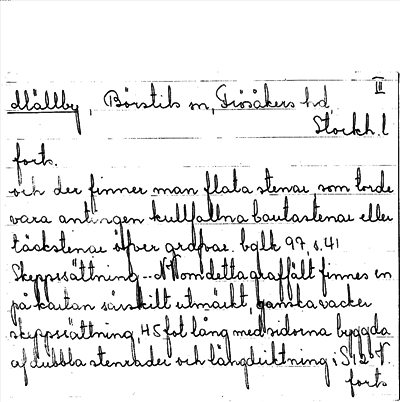 III
Mällby, Börstils sn, Frösåkers hd,
Stockh. l
forts.
och der finner man flata stenar som torde
vara antingen kullfallna bautastenar eller
täckstenar öfver grafvar. bglk 97, s. 41
Skeppssättning -- N om detta graffält finnes en
på kartan särskilt utmärkt, ganska vacker
skeppssättning, 45 fot lång med sidorna byggda
af dubbla stenrader och längdriktning i S 12° V.
forts